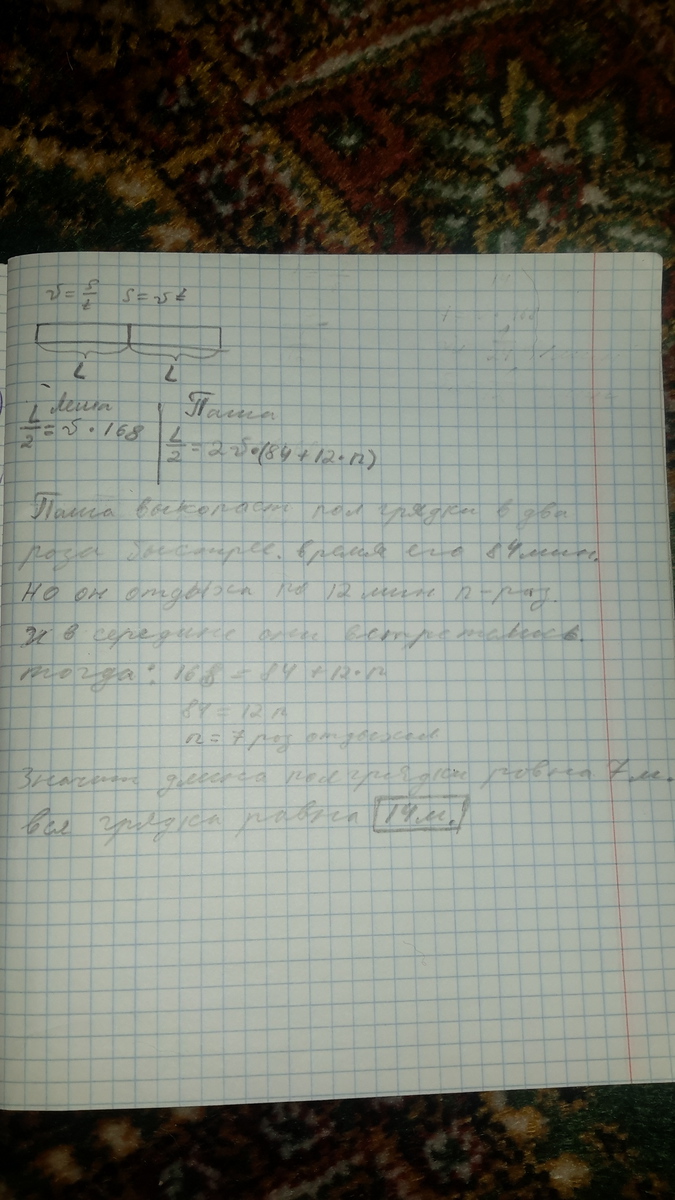 v = s/t   s = v t
L   L
Леша   Паша
L/2 = v • 168   L/2 = 2v•(84+12•n)
Паша выкопаст пол грядки в два
роза быстрее. время его 84 мин.
но он отдыха по 12 мин n-раз.
и в середине они встретелись.
тогда: 168 = 84 + 12•n
84 = 12 n
n = 7 роз отдыхал
Значит длина пол грядки ровна 7 м.
вся грядка ровна 14 м.